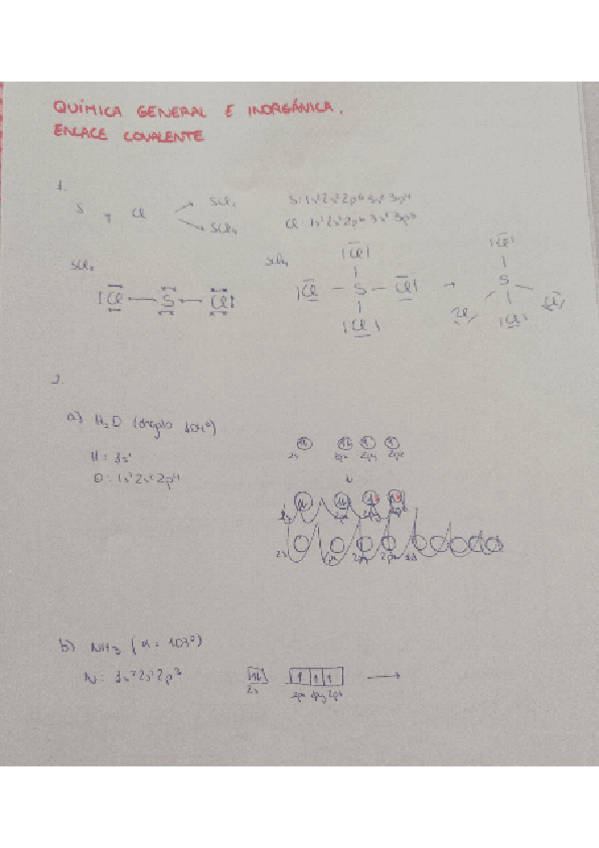 QUÍMICA GENERAL E INORGÁNICA.
ENLACE COVALENTE
1.
S y Cl
SCl₂
SCl₄
S: 1s²2s²2p⁶3s²3p⁴
Cl: 1s²2s²2p⁶3s²3p⁵
SCl₂
Cl S Cl
SCl₄
Cl
Cl S Cl
Cl
Cl
S
Cl Cl Cl
2.
a) H₂O (ángulo 104º)
H: 1s¹
O: 1s²2s²2p⁴
2s 2px 2py 2pz
b) NH₃ (α = 103º)
N: 1s²2s²2p³
2s 2px 2py 2pz